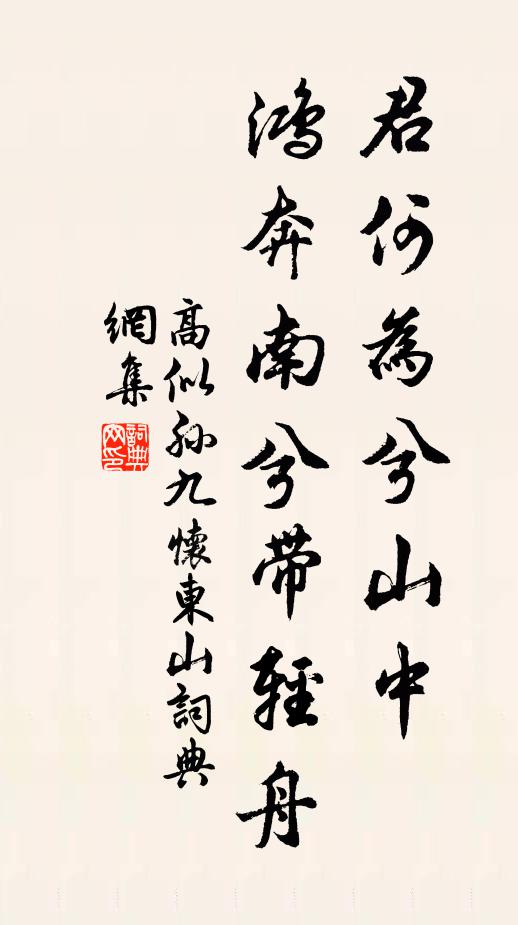 君何為兮山中
鴻奔南兮帶輕舟
高似孫九懷東山詞典
網集
詞典網印